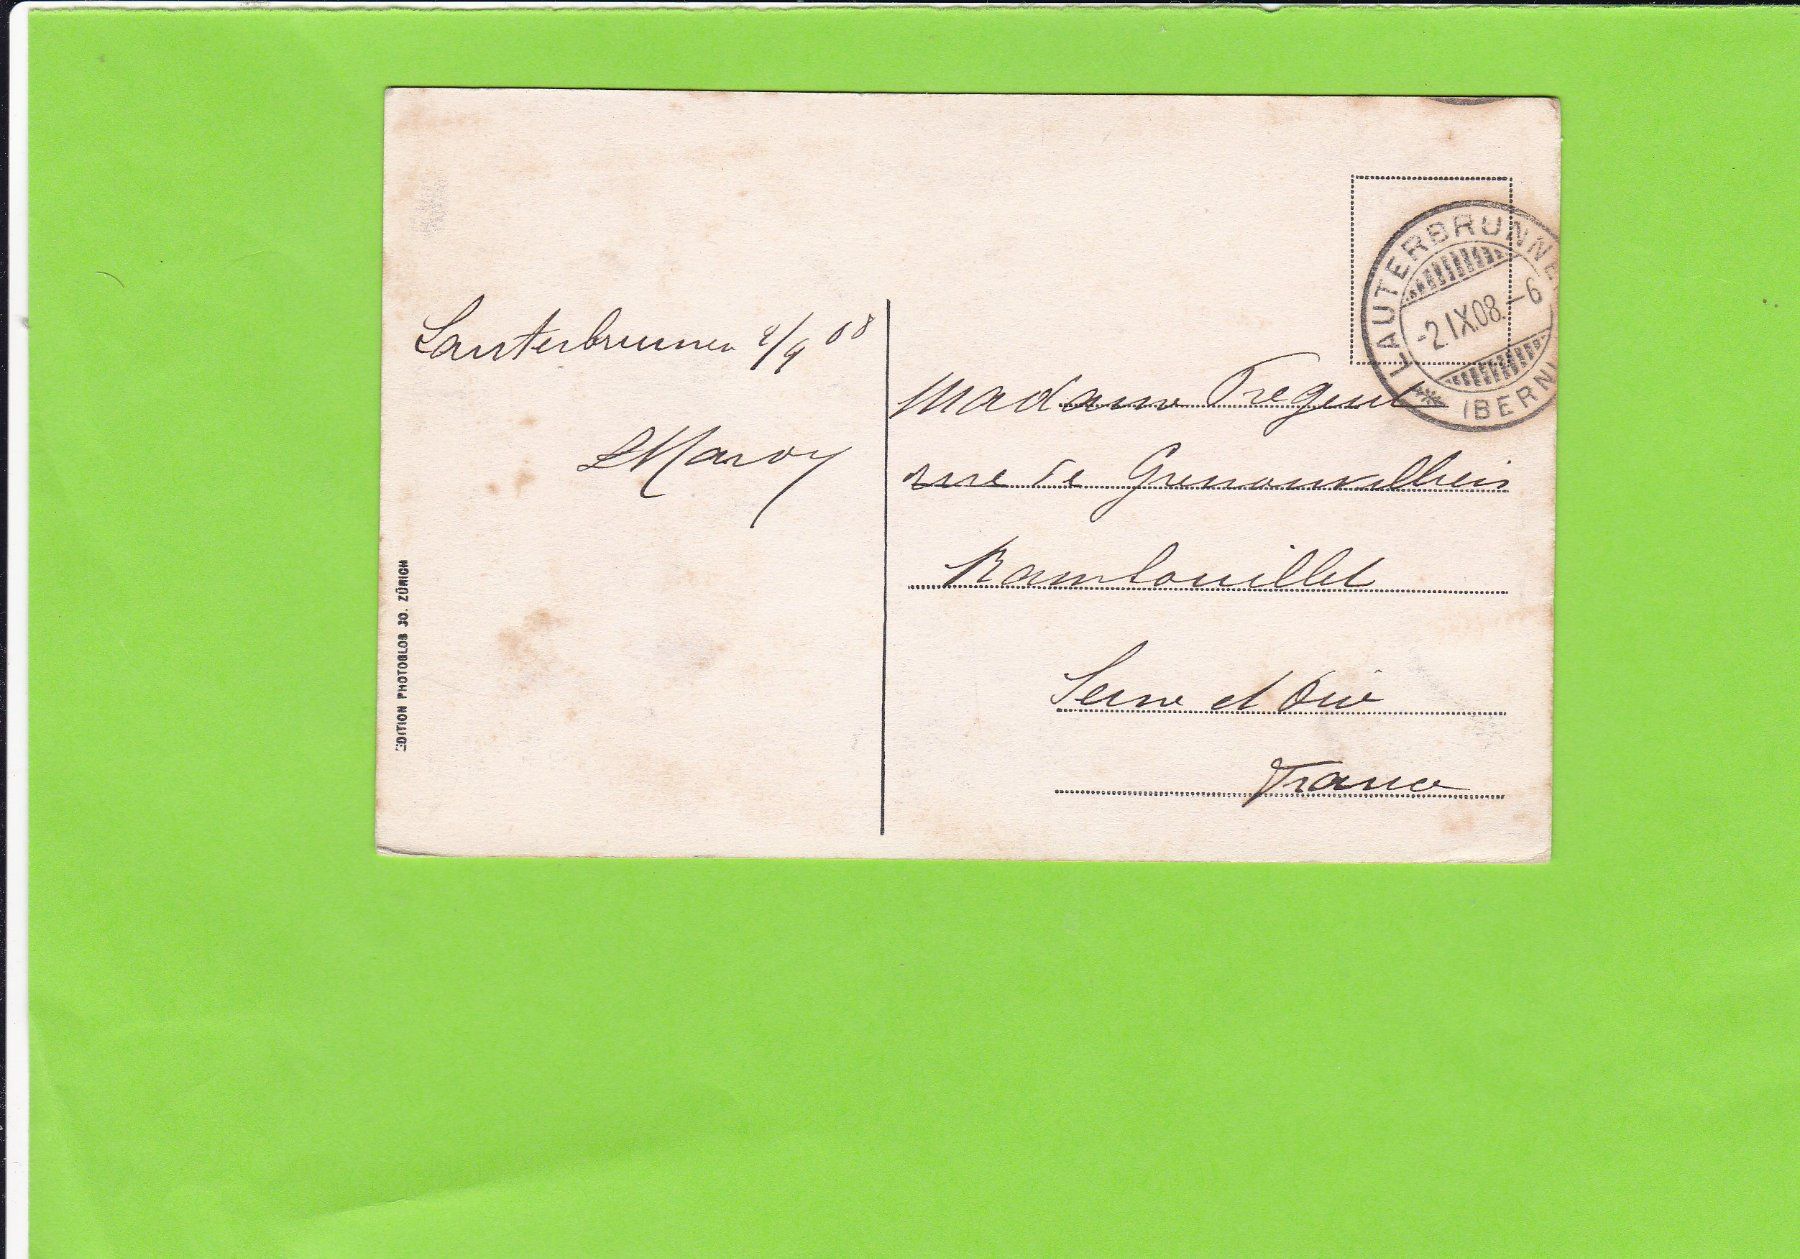 Lauterbrunnen 2/9 08
LMaroy
EDITION PHOTOGLOB JO. ZÜRICH
LAUTERBRUNNE
-2.IX.08.-6
(BERN)
Madame
rue de
Rambouillet
Seine et Oise
France